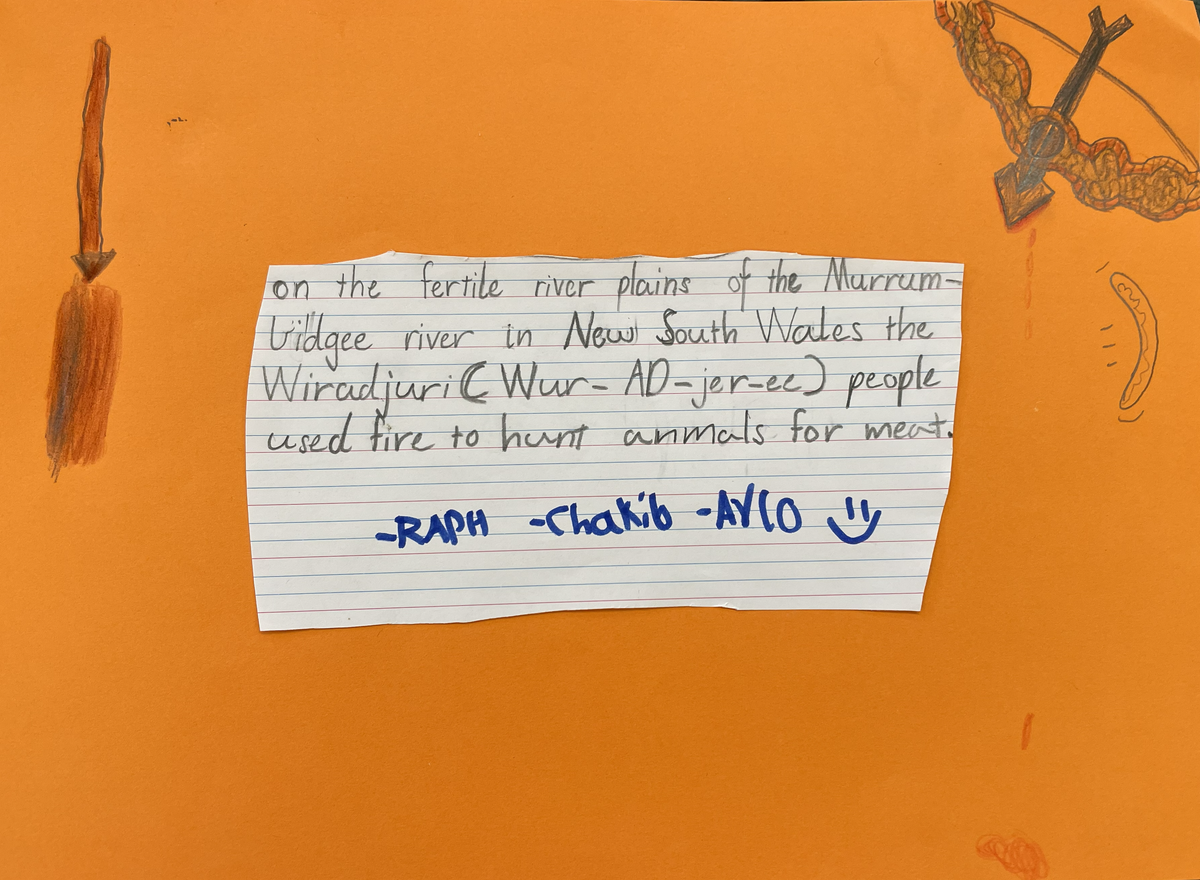 on the fertile river plains of the Murrum-
bidgee river in New South Wales the
Wiradjuri (Wur-AD-jer-ee) people
used fire to hunt anmals for meat.
-RAPH -Chakib -AYlO